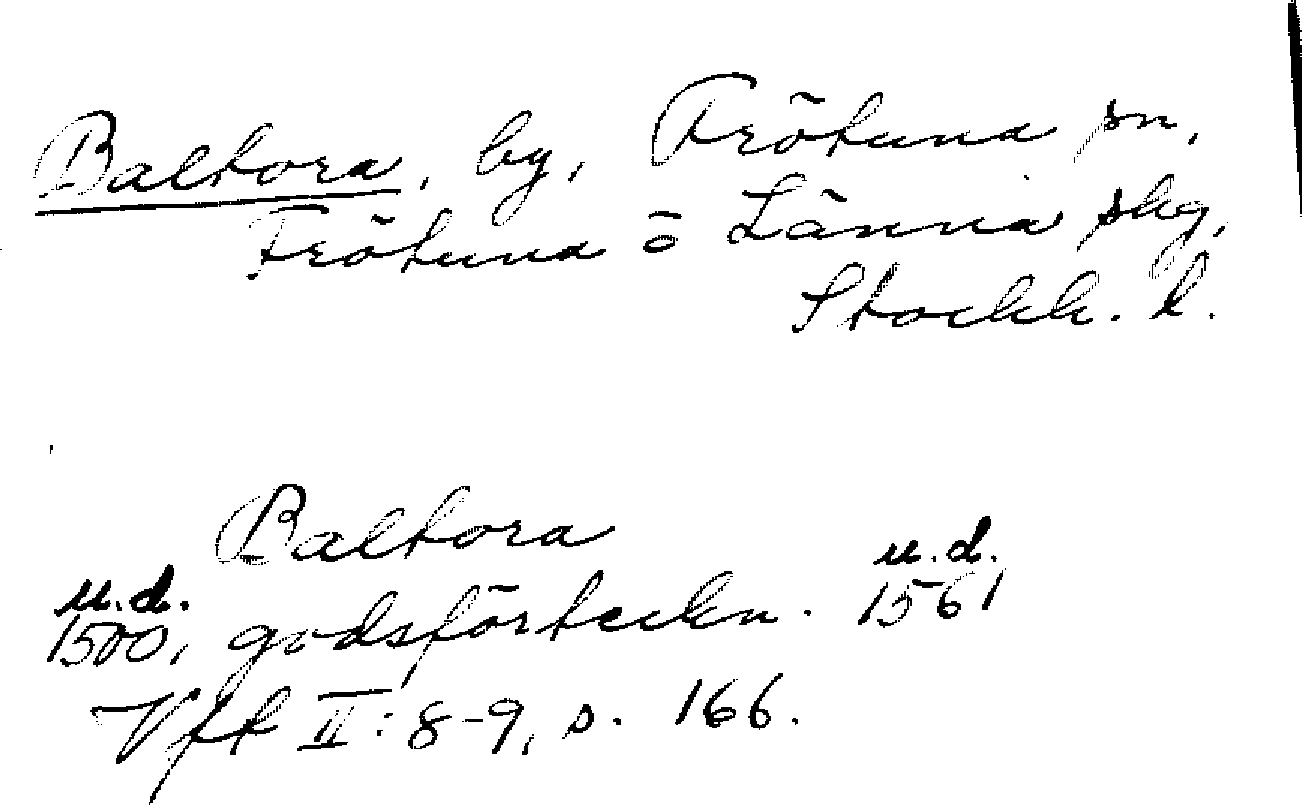 Baltora, by, Frötuna sn,
Frötuna o Länna skg,
Stockh. l.
Baltora
u.d. u.d.
1500, godsförteckn. 1561
Vft II: 8-9, s. 166.